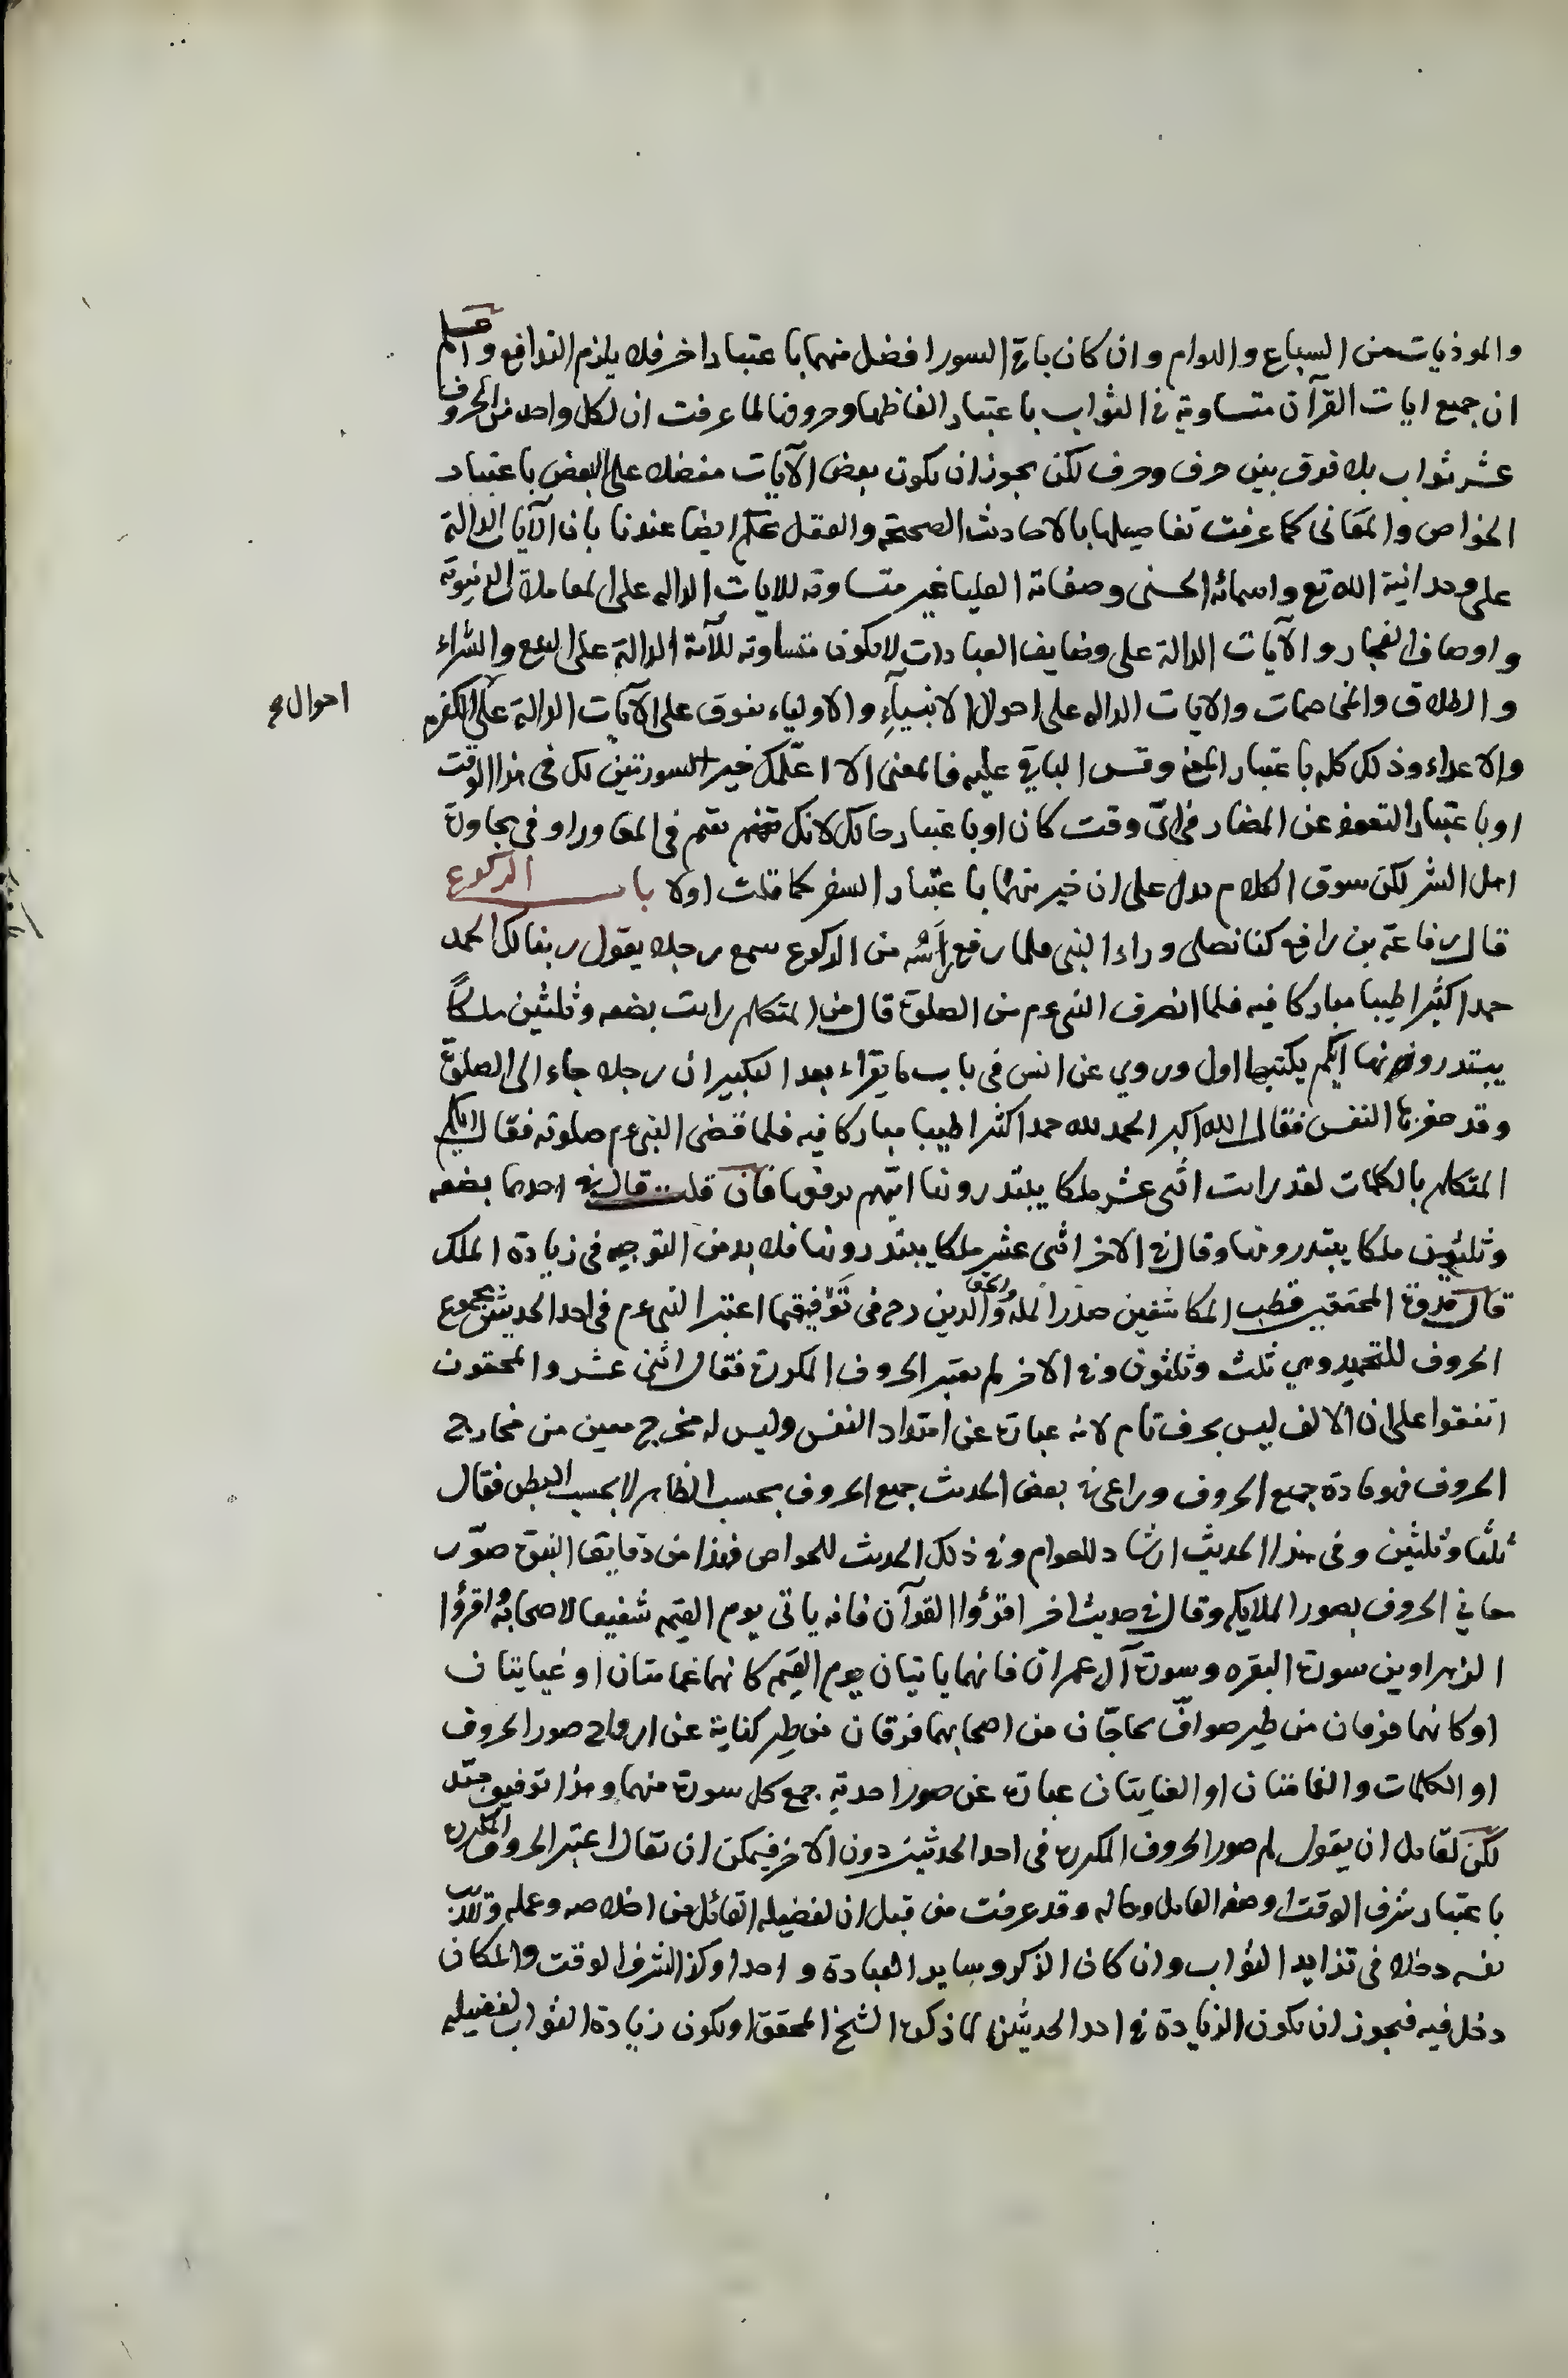 والموذيات من السباع والهوام وان كان باقى السور افضل منهما باعتبار اخر فلا يلزم التدافع واعلم
ان جميع ايات القرآن متساوية فى الثواب باعتبار الفاظها وحروفها لما عرفت ان لكل واحد من الحروف
عشر ثواب بلا فرق بين حرف وحرف لكن يجوز ان يكون بعض الآيات مفضلا على البعض باعتبار
الخواص والمعانى كما عرفت تفاصيلها بالاحاديث الصحيحة والعقل يحكم ايضا عندنا بان الآيات الدالة
على وحدانية الله تع واسمائه الحسنى وصفاته العليا غير متساوية للايات الداله على المعاملات الدنيوية
واوصاف الفجار والآيات الدالة على وضايف العبادات لا يكون متساوية للآية الدالة على البيع والشراء
والطلاق والمخاصمات والايات الداله على احوال الانبياء والاولياء يفوق على الآيات الدالة على الكفرة
احوال
والاعداء وذلك كله باعتبار المعنى وقس الباقى عليه فالمعنى الا اعلمك خير السورتين لك فى هذا الوقت
او باعتبار التعوذ عن المضار فى اىّ وقت كان او باعتبار حالك لانك تقيم فى المغاور او فى مجاورة
اهل الشر لكن سوق الكلام يدل على ان خير منهما باعتبار السفر كما قلت اولا باب الركوع
قال رفاعة بن رافع كنا نصلى وراء النبى فلما رفع رأسه من الركوع سمع رجلا يقول ربنا لك الحمد
حمدا كثيرا طيبا مباركا فيه فلما انصرف النبى عم من الصلوة قال من المتكلم رايت بضعه وثلثين ملكاً
يبتدرونها ايكم يكتبها اول وروي عن انس فى باب ما يقراء بعد التكبير ان رجلا جاء الى الصلوة
وقد حفزها النفس فقال الله اكبر الحمد لله حمدا كثيرا طيبا مباركا فيه فلما قضى النبى عم صلوته فقال ايكم
المتكلم بالكلمات لقد رايت اثنى عشر ملكا يبتدرونها ايّهم يرفعها فان قلت قال فى احدهما بضعه
وثلثون ملكا يبتدرونها وقال فى الاخر اثنى عشر ملكا يبتدرونها فلا بد من التوجيه فى زيادة الملك
قال قدوة المحققين قطب المكاشفين صدر المله والحق والدين رح فى تَوْفيقهما اعتبر النبى عم فى احد الحديثين مجموع
الحروف للتحميد وهي ثلث وثلثون وفى الاخر لم يعتبر الحروف المكررة فقال اثنى عشر والمحققون
اتفقوا على ان الالف ليس بحرف تام لانه عبارة عن امتداد النفس وليس له مخرج معين من مخارج
الحروف فهو مادة جميع الحروف وراعى فى بعض الحديث جميع الحروف بحسب الظاهر لا بحسب البطن فقال
ثلثا وثلثين وفى هذا الحديث ارشاد للعوام وفى ذلك الحديث للخواص فهذا من دقايق النبوة صوّر
معاني الحروف بصور الملايكه وقال فى حديث اخر اقرؤا القرآن فانه ياتى يوم القيمه شفيعا لاصحابه اقرؤا
الزهراوين سورة البقره وسورة آل عمران فانهما ياتيان يوم القيمه كانهما غمامتان او غيايتان
او كانهما فرقان من طير صوافّ يحاجّان من اصحابهما فرقان من طير كناية عن ارواح صور الحروف
او الكلمات والغمامتان او الغيايتان عبارة عن صور احدية جمع كل سورة منهما وهذا توفيق جيّد
لكن لقايل ان يقول لم صور الحروف المكررة فى احد الحديثين دون الآخر فيمكن ان يقال اعتبر الحروف المكررة
باعتبار شرف الوقت او صفه العامل وحاله وقد عرفت من قبل ان لفضيله القائل من اخلاصه وعمله وتاديب
نفسه دخلا فى تزايد الثواب وان كان الذكر وساير العبادة واحدا وكذا لشرف الوقت والمكان
دخل فيه فيجوز ان يكون الزيادة فى احد الحديثين لما ذكره الشيخ المحقق او يكون زيادة الثواب لفضيله